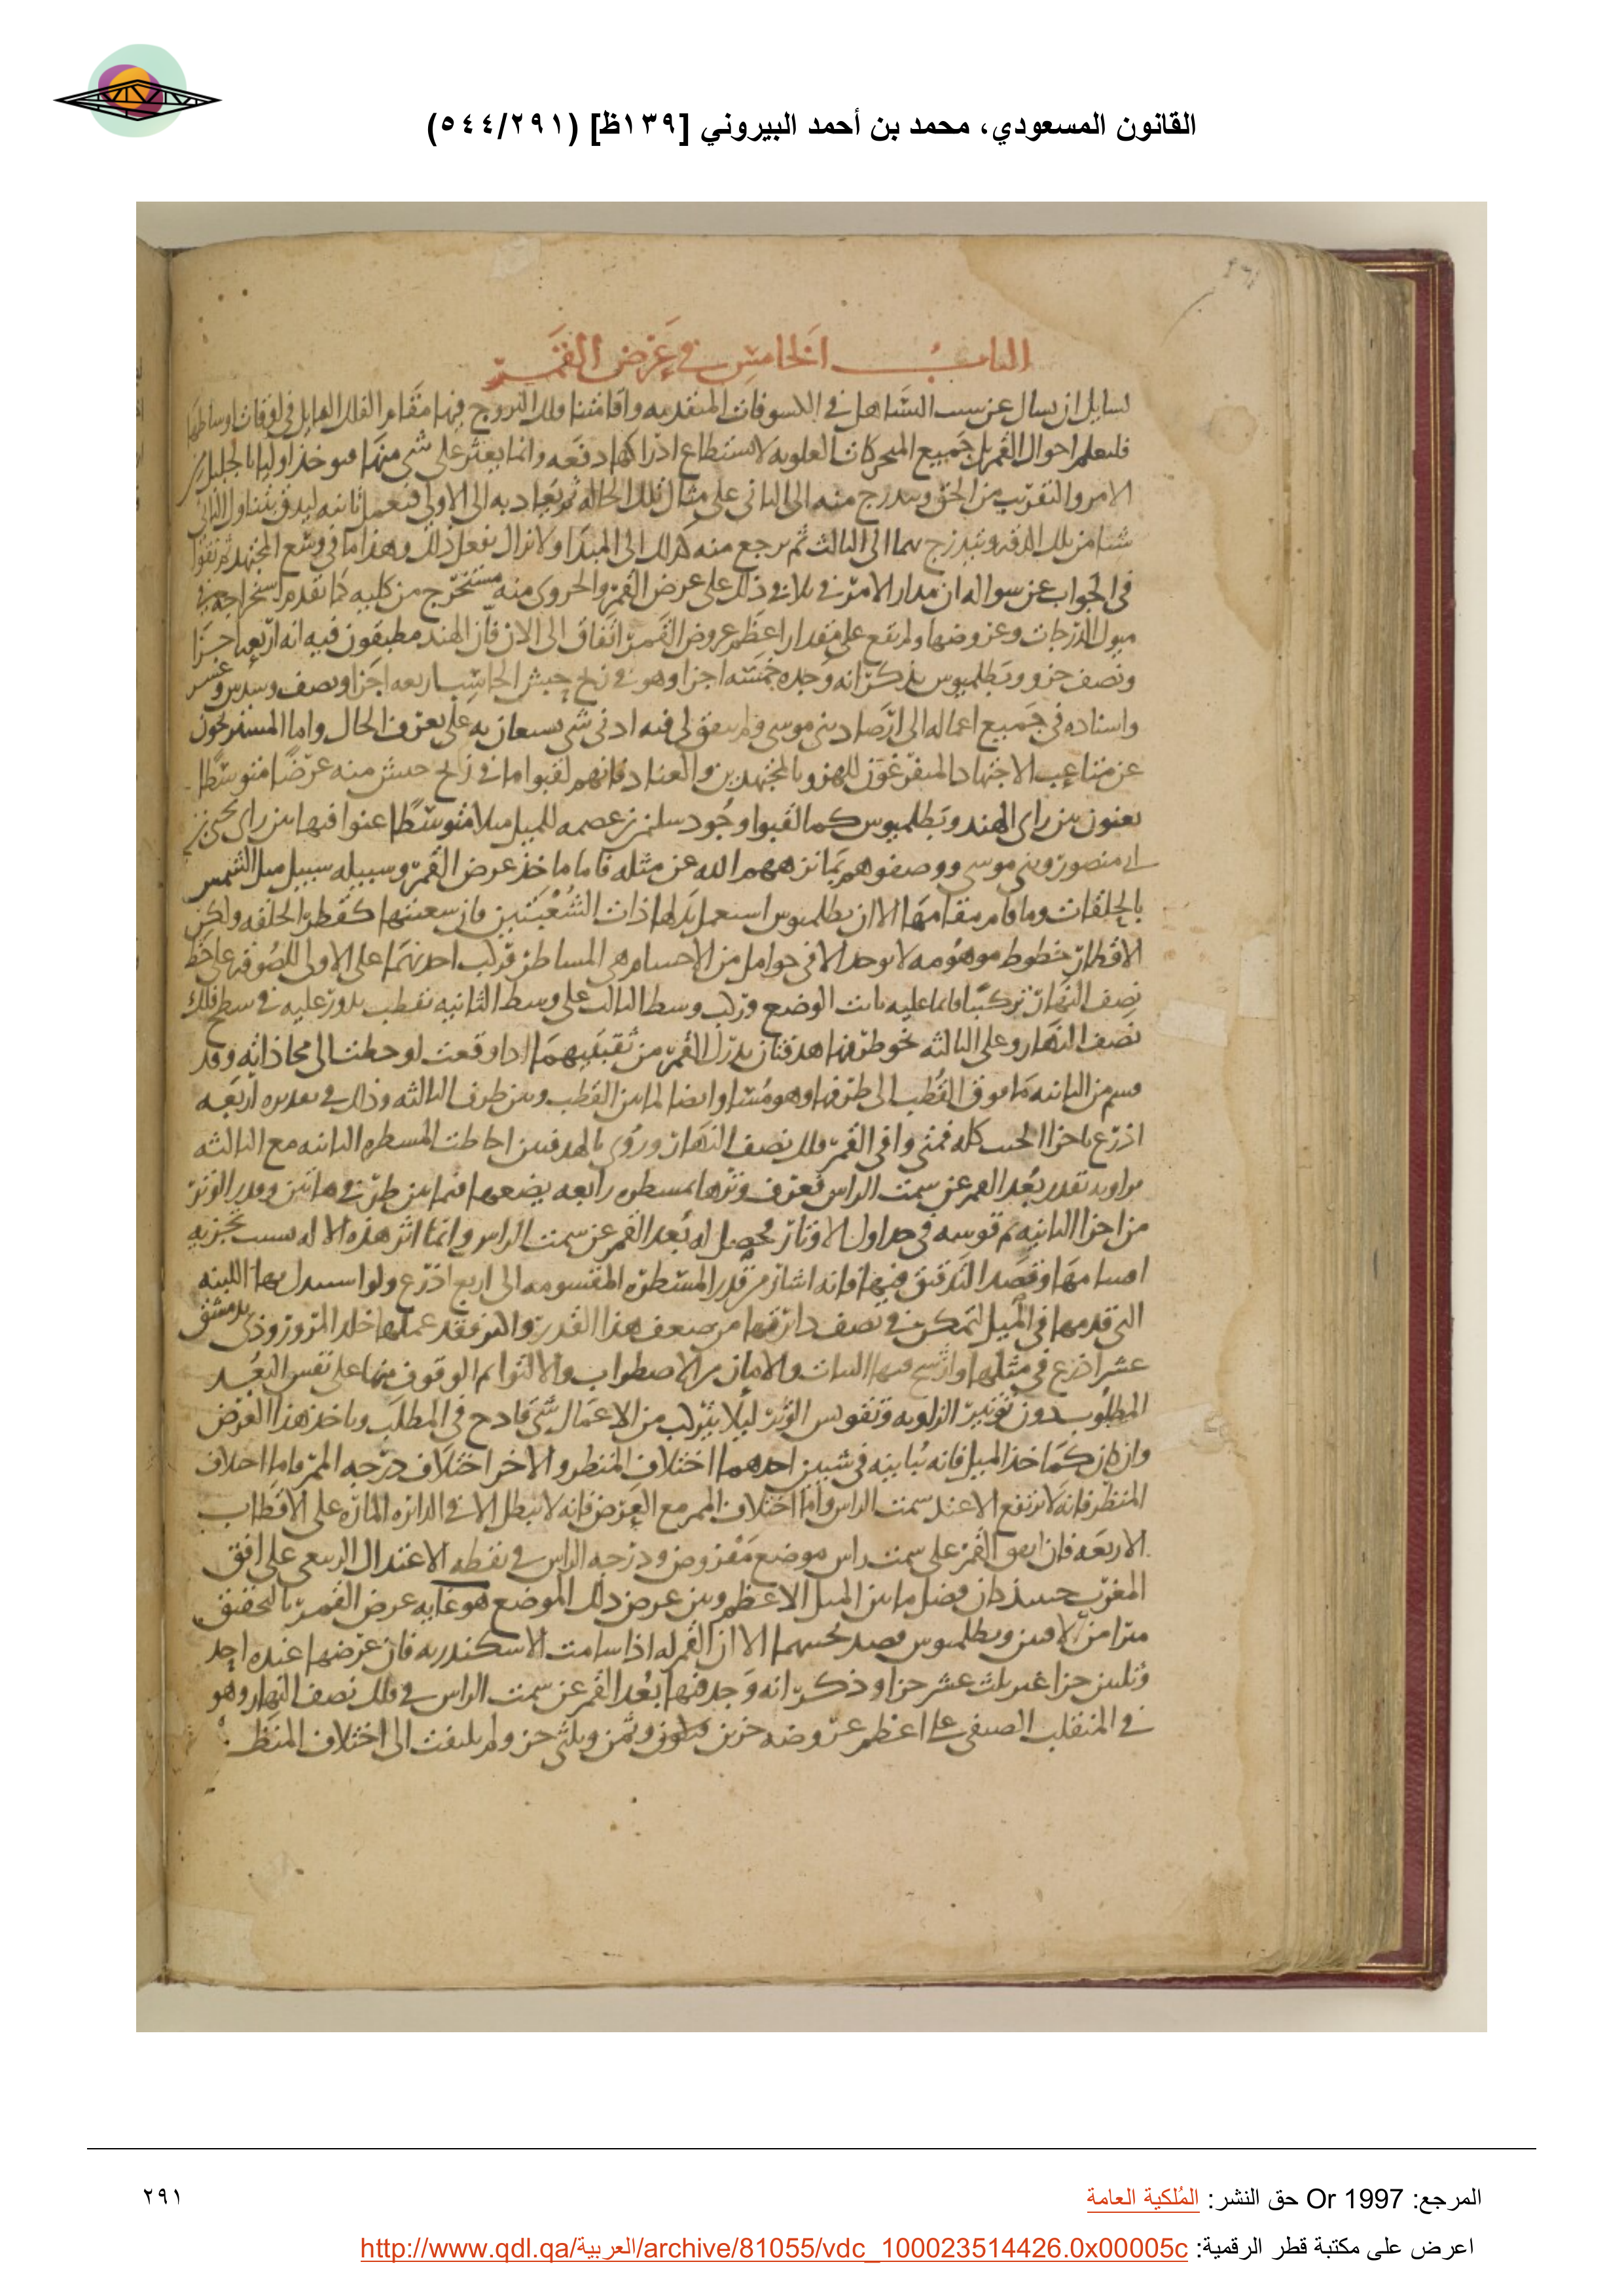 القانون المسعودي، محمد بن أحمد البيروني [١٣٩ظ] (٥٤٤/٢٩١)
الباب الخامس في عرض القمر
لسايل ان يسال عن سبب التساهل في الكسوفات المتقدمه واقامتنا فلك البروج فيها مقام الفلك المايل في اوقات اوساطها
فليعلم احوال القمر بل جميع المتحركات العلويه لا يستطاع ادراكها دفعه وانما يعثر على شي منها فيوخذ اوليا بالجليل من
الامر والتقريب من الحق ويتدرج منه الى الثاني على مثال تلك الحاله ثم يعاد به الى الاول فيعمل ثانيه ليدق بتناول الثاني
شيا من تلك الدقه ويتدرج بهما الى الثالث ثم يرجع منه كذلك الى المبدا ولا نزال نفعل ذلك وهذا ما في وسع المجتهد
في الجواب عن سواله ان مدار الامر في ذلك على عرض القمر والجزوي منه مستخرج من كليه كما تقدم استخراجه في
ميول الدرجات وعروضها ولم يقع على مقدار اعظم عروض القمر اتفاق الى الان فان الهند مطبقون فيه انه اربعه اجزا
ونصف جزو وبطلميوس يذكر انه وجده خمسه اجزا وهو في زيج حبش الحاسب اربعه اجزا ونصف وسدس وعشر
واسناده في جميع اعماله الى ارصاد بني موسى ولم يتفق لي فيه ادنى شي يستعان به على تعرف الحال واما المستريحون
عن متاعب الاجتهاد المتفرغون للهزو بالمجتهدين والعناد فانهم لقبوا ما في زيج حبش منه عرضا متوسطا
يعنون بين راى الهند وبطلميوس كما لقبوا وجود سلمن بن عصمه للميل ميلا متوسطا عنوا فيها بين راى يحيى بن
ابي منصور وبني موسى ووصفوهم بما نزههم الله عن مثله فاما ماخذ عرض القمر وسبيله سبيل ميل الشمس
بالحلقات وما قام مقامها الا ان بطلميوس استعمل بدلها ذات الشعبتين فان سعتها كقطر الحلقه ولكن
الاقطار خطوط موهومه لا توجد الا في حوامل من الاجسام هي المساطر فركب احديهما على الاولى للصوقه على خط
نصف النهار تركيبا قايما عليه ثابت الوضع وركب وسط الثالث على وسط الثانيه بقطب يدور عليه في سطح فلك
نصف النهار وعلى الثالثه نحو طرفها هدفتان يدرك القمر من ثقبتيهما اذا وقعت لو حطت الى محاذاته وقد
قسم من الثانيه ما فوق القطب الى طرفها وهو مساو ايضا لما بين القطب وبين طرف الثالثه وذلك في تقديره اربعه
اذرع باجزا الجيب كله فمتى وافى القمر فلك نصف النهار وروى بالهدفتين احاطت المسطره الثانيه مع الثالثه
بزاويه تقدر بعد القمر عن سمت الراس فتعرف وترها بمسطره رابعه يضعها فيما بين طرفي هاتين وقدر الوتر
من اجزا الثانيه ثم قوسه في جداول الاوتار فحصل له بعد القمر عن سمت الراس وانما اثر هذه الاله بسبب تجزيه
اقسامها وقصد التدقيق فيها فانه اشار من قدر المسطره المقسومه الى اربع اذرع ولو استبدل بها اللبنه
التي قدمها في الميل لتمكن في نصف دايرتها من ضعف هذا القدر واكثر فقد عملها خلد المروروذي بدمشق
عشر اذرع في مثلها واتسع فيها الثبات والامان من الاضطراب والالتوا ثم الوقوف منها على نفس البعد
المطلوب دون توتير الزاويه وتقويس الوتر ليلا يتركب من الاعمال شي قادح في المطلب وماخذ هذا العرض
وان كان كماخذ الميل فانه يباينه في شيين احدهما اختلاف المنظر والاخر اختلاف درجه الممر فاما اختلاف
المنظر فانه لا يرتفع الا عند سمت الراس واما اختلاف الممر مع العرض فانه لا يبطل الا في الدايره الماره على الاقطاب
الاربعه فان اتفق القمر على سمت راس موضع مفروض ودرجه الراس في نقطه الاعتدال الربيعي على افق
المغرب حينيذ كان فضل ما بين الميل الاعظم وبين عرض ذلك الموضع هو غايه عرض القمر بالتحقيق
مبرا من الافتين وبطلميوس قصد بحسهما الا ان القمر له اذا سامت الاسكندريه فان عرضها عنده احد
وثلثين جزا غير ثلث عشر جزا وذكر انه وجد فيها بعد القمر عن سمت الراس في فلك نصف النهار وهو
في المنقلب الصيفي على اعظم عروضه جزين وثمن وثلثي جزو ولم يلتفت الى اختلاف المنظر
المرجع: Or 1997 حق النشر: المُلكية العامة
٢٩١
اعرض على مكتبة قطر الرقمية: http://www.qdl.qa/العربية/archive/81055/vdc_100023514426.0x00005c